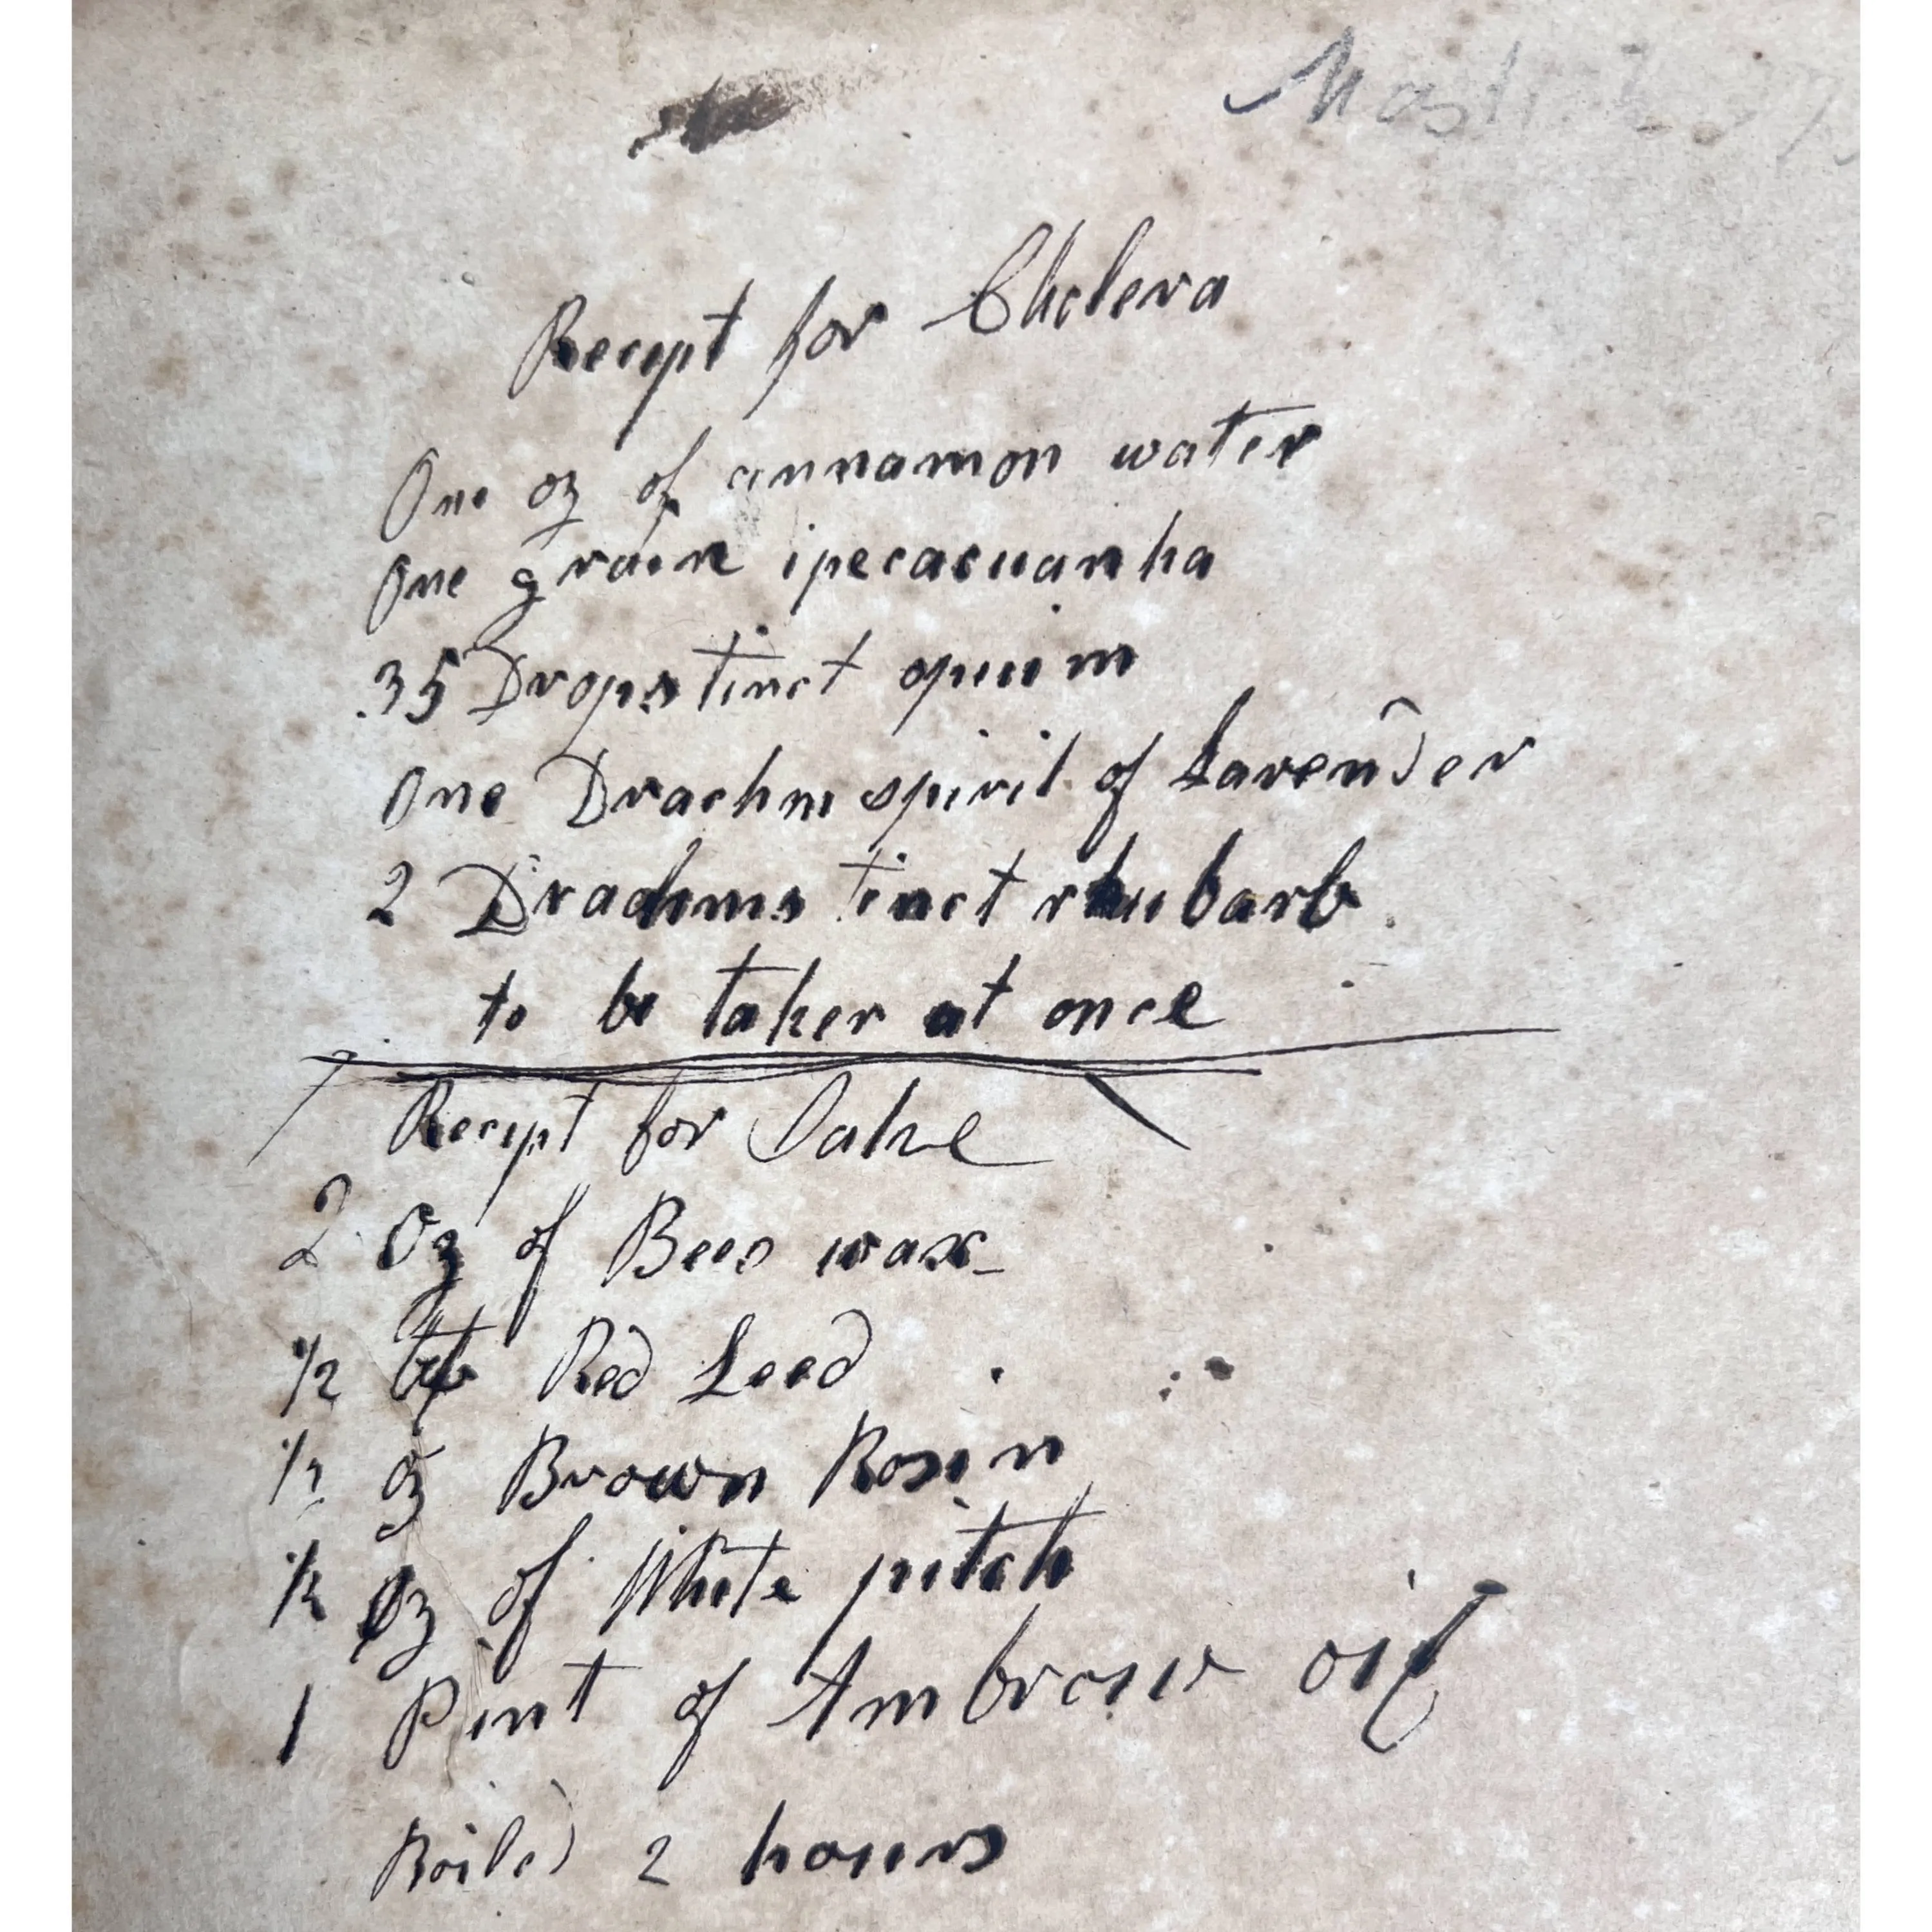 Recipt for Cholera
One oz of cinnamon water
One grain ipecacuanha
35 Drops tinct opium
One Drachm spirit of Lavender
2 Drachms tinct rhubarb
to be taken at once
Recipt for Salve
2 Oz of Bees wax
1/2 lb Red Leed
1/2 oz Brown Rosin
1/2 Oz of White pitch
1 Pint of oil
Boiled 2 hours